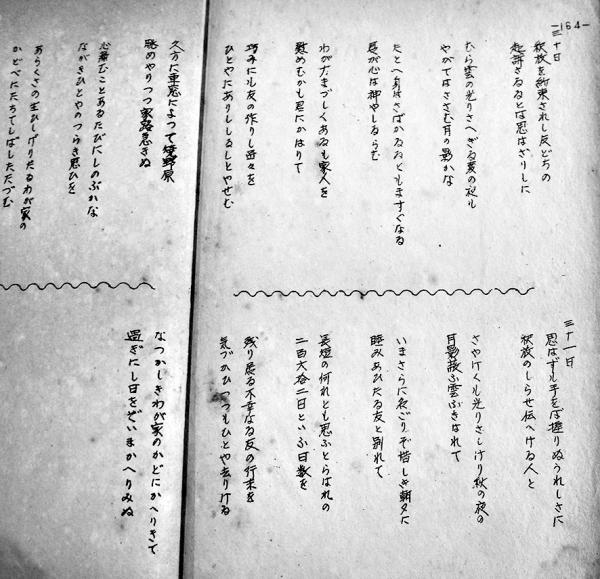 -164-
三十日
釈放を約束されし友どちの
起訴さるるとは思はざりしに
むら雲の光りさへぎる夏の夜も
やがてはささむ月の影かな
たとへ身はさばかるるともますぐなる
君が心は神やしるらむ
わがたまづしくあるも家人を
慰めむかも君にかはりて
巧みにも友の作りし品々を
ひとやにありししるしとやせむ
久方に車窓によつて焼野原
眺めやりつつ家路急ぎぬ
心無むことあるたびにしのぶかな
ながきひとやのつらき思ひを
あらくさの生ひしげりたるわが家の
かどべにたちてしばしたたづむ
三十一日
思はずも手をば握りぬうれしさに
釈放のしらせ伝へける人と
さやけくも光りさしけり秋の夜の
月影蔽ふ雲ふきはれて
いまさらに名ごりぞ惜しき朝夕に
睦みあひたる友と別れて
長短の何れとも思ふとらはれの
二百六拾二日といふ日数を
残り居る不幸なる友の行末を
気づかひつつもひとや去りける
なつかしきわが家のかどにかへりきて
過ぎにし日をぞいまかへりみぬ